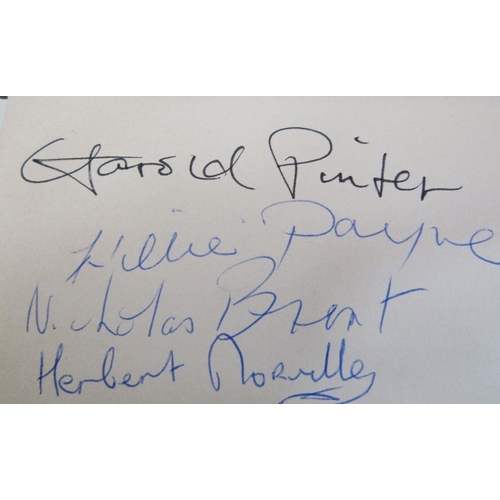 Harold Pinter
Millie Payne
Nicholas Brent
Herbert